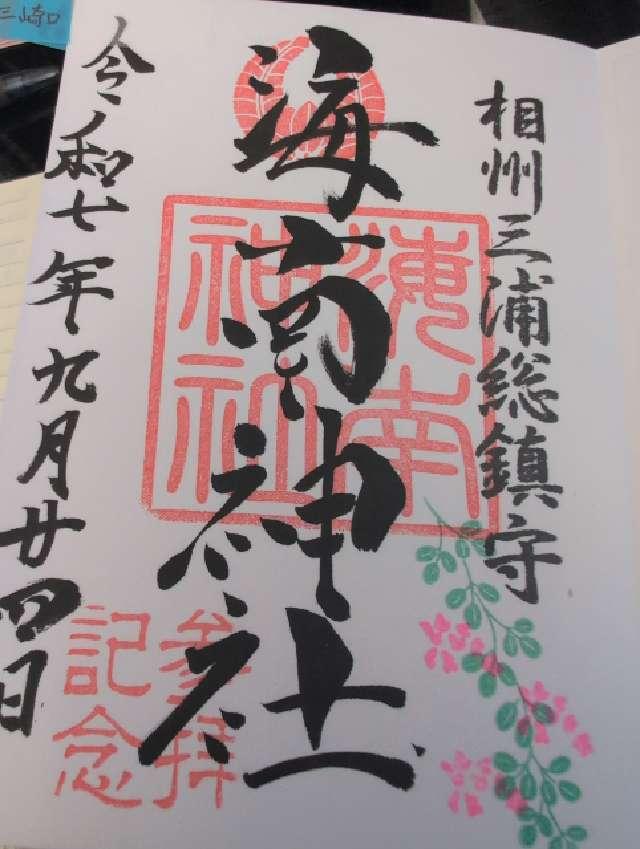 相州三浦総鎮守
海南神社
海南神社
参拝記念
令和七年九月廿四日
三崎口